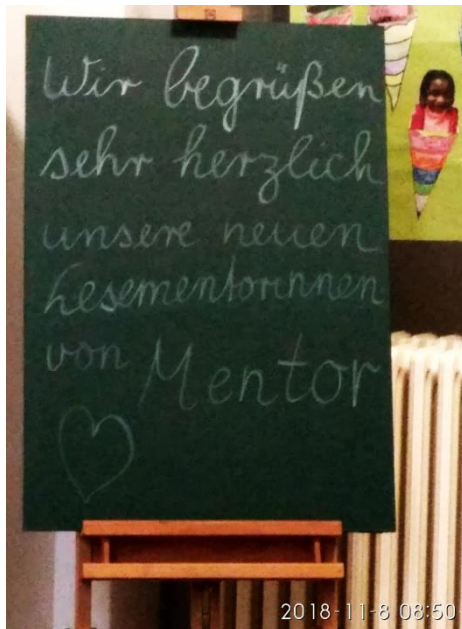 Wir begrüßen
sehr herzlich
unsere neuen
Lesementorinnen
von Mentor
2018-11-8 08:50